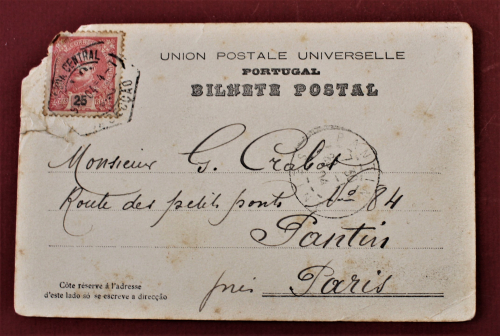 UNION POSTALE UNIVERSELLE
PORTUGAL
BILHETE POSTAL
CENTRAL
25
Monsieur G. Crabos
Route des petits ponts No 84
Pantin
près Paris
Côte réservé à l'adresse
d'este lado só se escreve a direcção